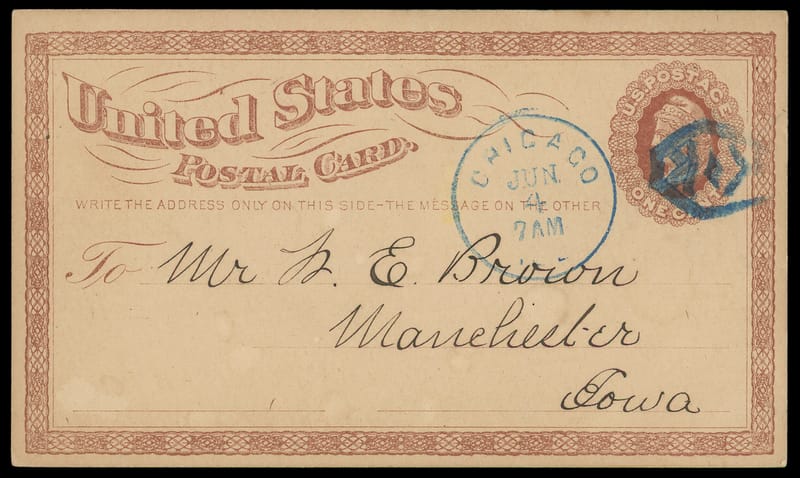 United States
Postal Card.
WRITE THE ADDRESS ONLY ON THIS SIDE-THE MESSAGE ON THE OTHER
U.S. POSTAGE
ONE CENT
CHICAGO
JUN.
4
7AM
To Mr E. Brown
Manchester
Iowa